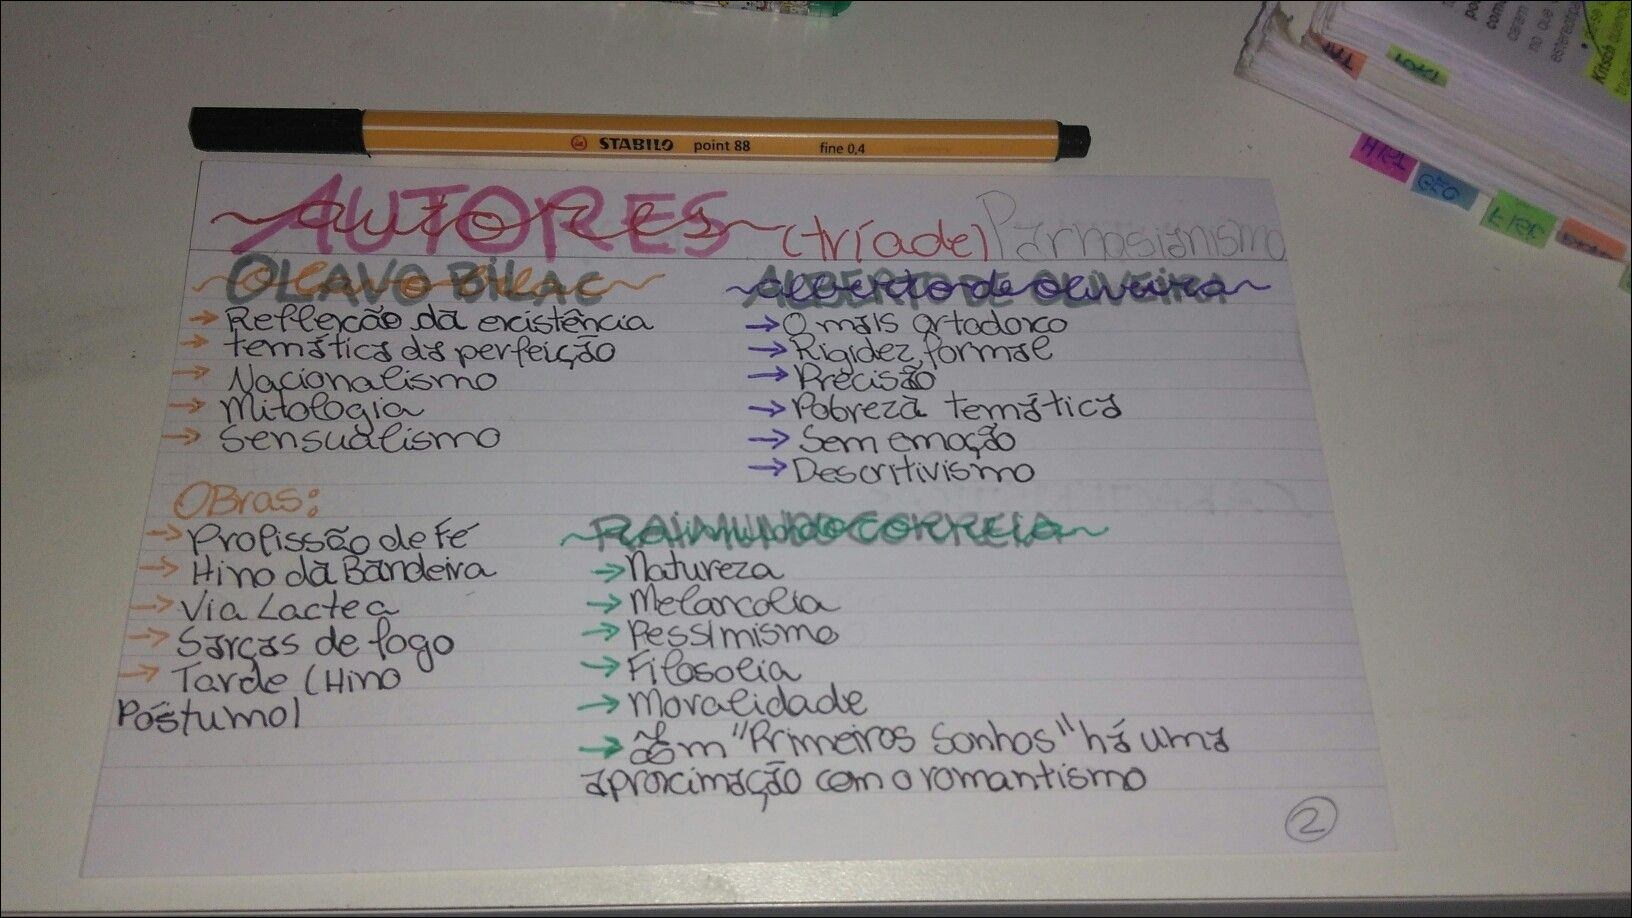 STABILO point 88 fine 0,4
AUTORES (tríade) Parnasianismo
OLAVO BILAC
→ Reflexão da existência
→ temática da perfeição
→ Nacionalismo
→ Mitologia
→ Sensualismo
Obras:
→ Profissão de Fé
→ Hino da Bandeira
→ Via Lactea
→ Sarças de fogo
→ Tarde (Hino
Póstumo)
Alberto de Oliveira
→ O mais ortodoxo
→ Rigidez formal
→ Precisão
→ Pobreza temática
→ Sem emoção
→ Descritivismo
Raimundo Correia
→ Natureza
→ Melancolia
→ Pessimismo
→ Filosofia
→ Moralidade
→ Em "Primeiros Sonhos" há uma
aproximação com o romantismo
2